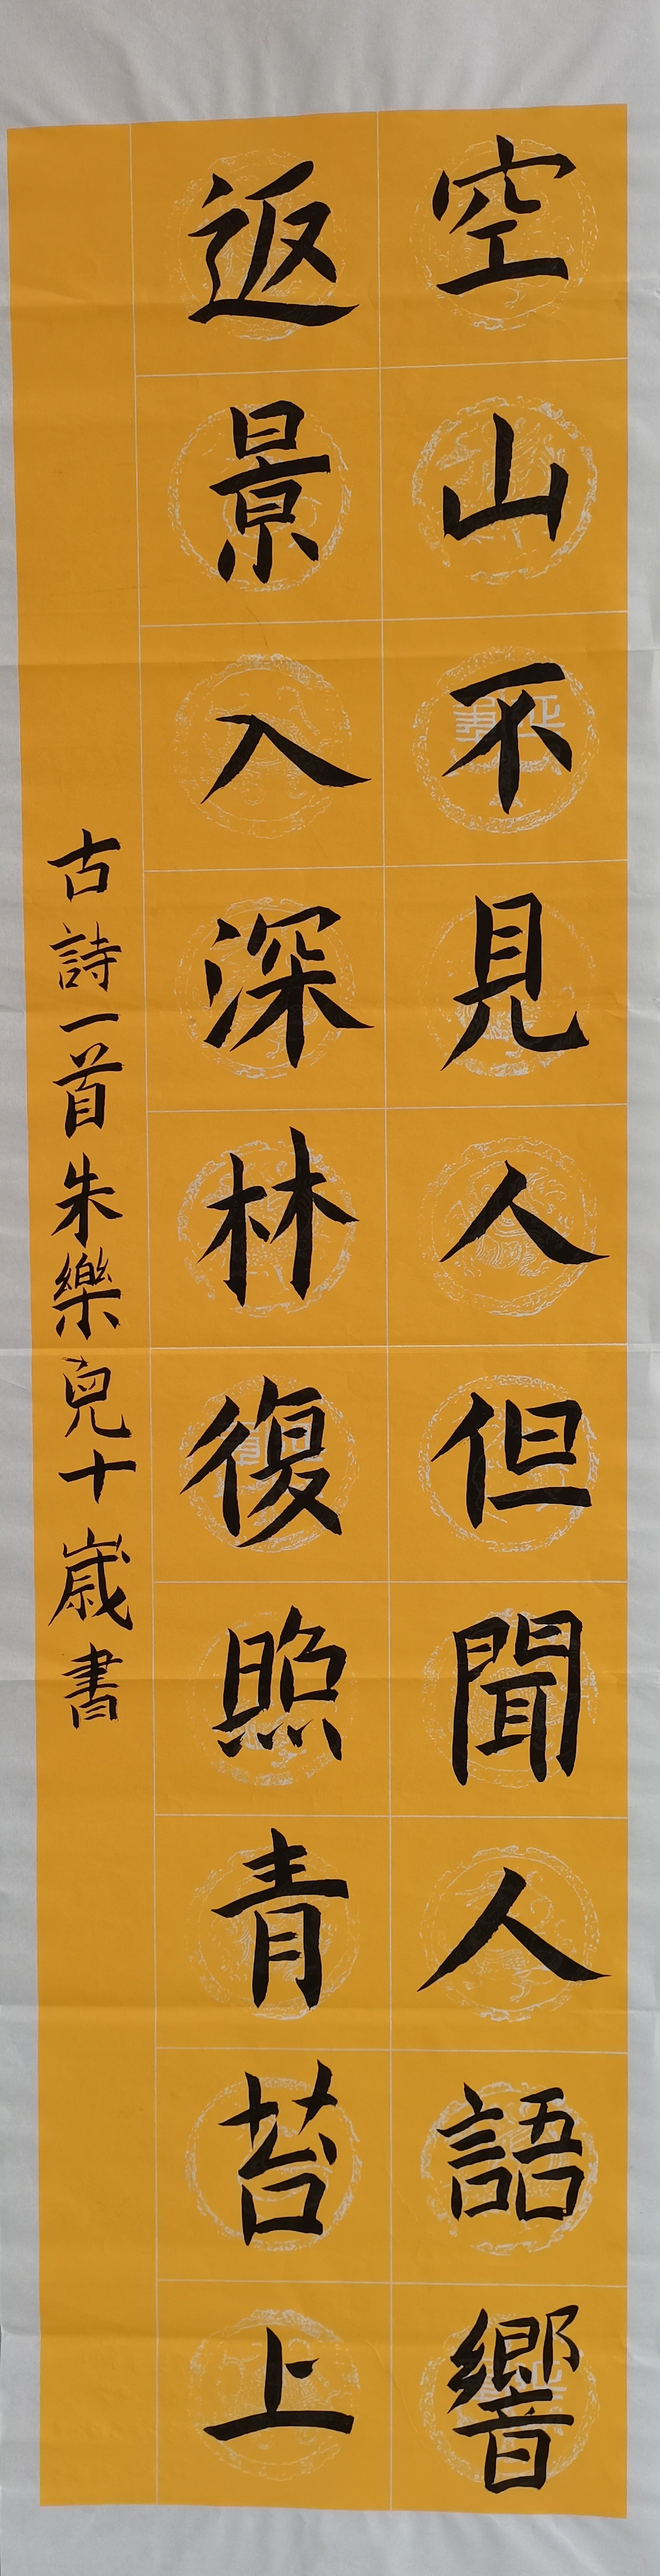 空山不見人但聞人語響
返景入深林復照青苔上
古詩一首朱樂兒十歲書